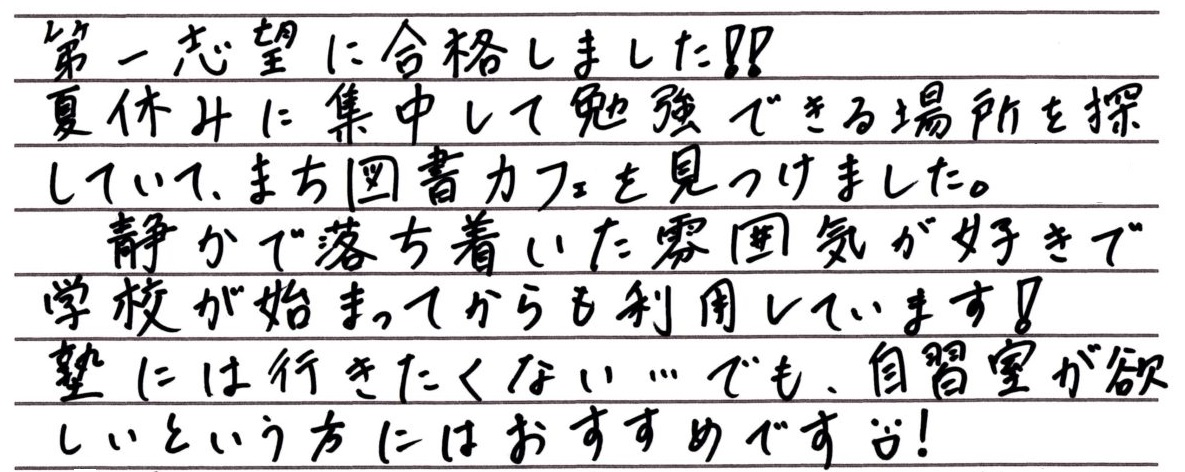 第一志望に合格しました!!
夏休みに集中して勉強できる場所を探
していて、まち図書カフェを見つけました。
静かで落ち着いた雰囲気が好きで
学校が始まってからも利用しています!
塾には行きたくない…でも、自習室が欲
しいという方にはおすすめです!